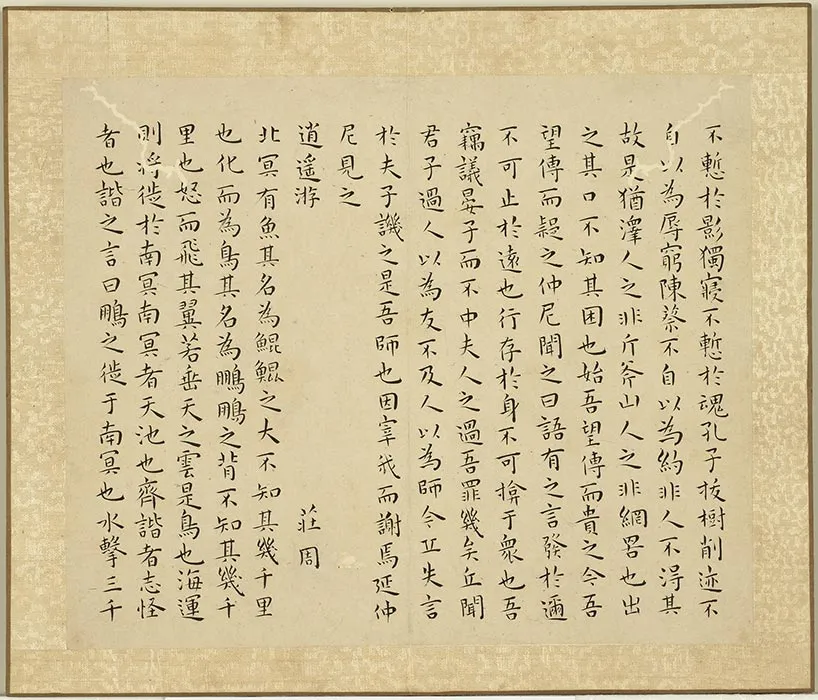 不慙於影獨寢不慙於魂孔子拔樹削迹不
自以為辱窮陳蔡不自以為約非人不淂其
故是猶澤人之非斤斧山人之非網罟也出
之其口不知其困也始吾望傳而貴之今吾
望傳而疑之仲尼聞之曰語有之言發於邇
不可止於遠也行存於身不可揜于衆也吾
竊議晏子而不中夫人之過吾罪幾矣丘聞
君子過人以為友不及人以為師今丘失言
於夫子譏之是吾師也因宰我而謝焉延仲
尼見之
逍遥游 莊周
北冥有魚其名為鯤鯤之大不知其幾千里
也化而為鳥其名為鵬鵬之背不知其幾千
里也怒而飛其翼若垂天之雲是鳥也海運
則將徙於南冥南冥者天池也齊諧者志怪
者也諧之言曰鵬之徙于南冥也水擊三千